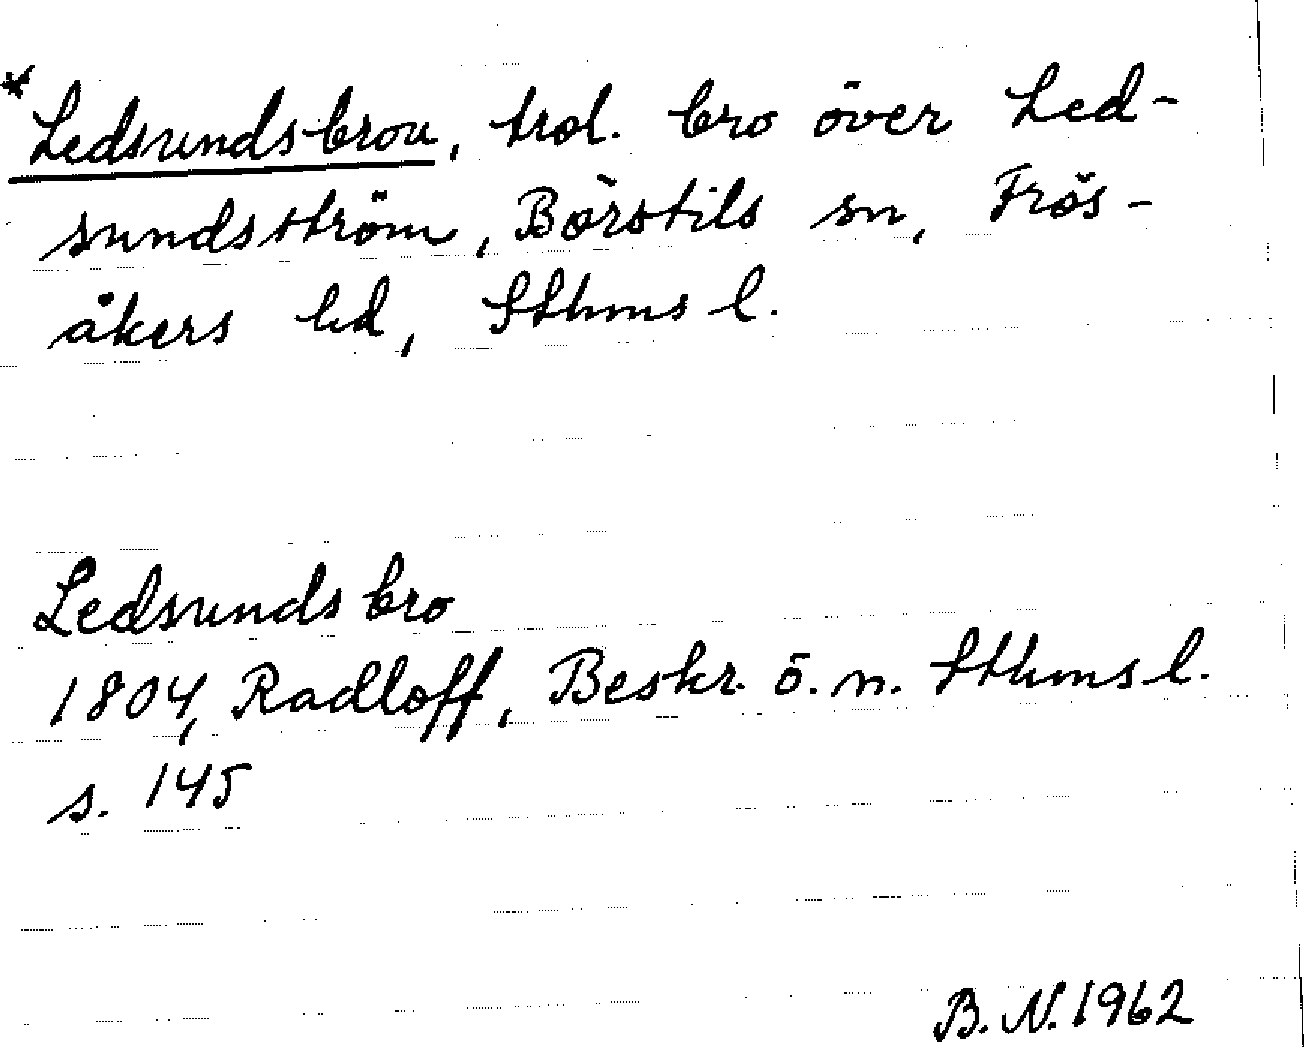 *Ledsundsbron, trol. bro över Led-
sundsström, Börstils sn, Frös-
åkers hd, Sthms l.
Ledsunds bro
1804, Radloff, Beskr. ö. n. Sthms l.
s. 145
B. N. 1962